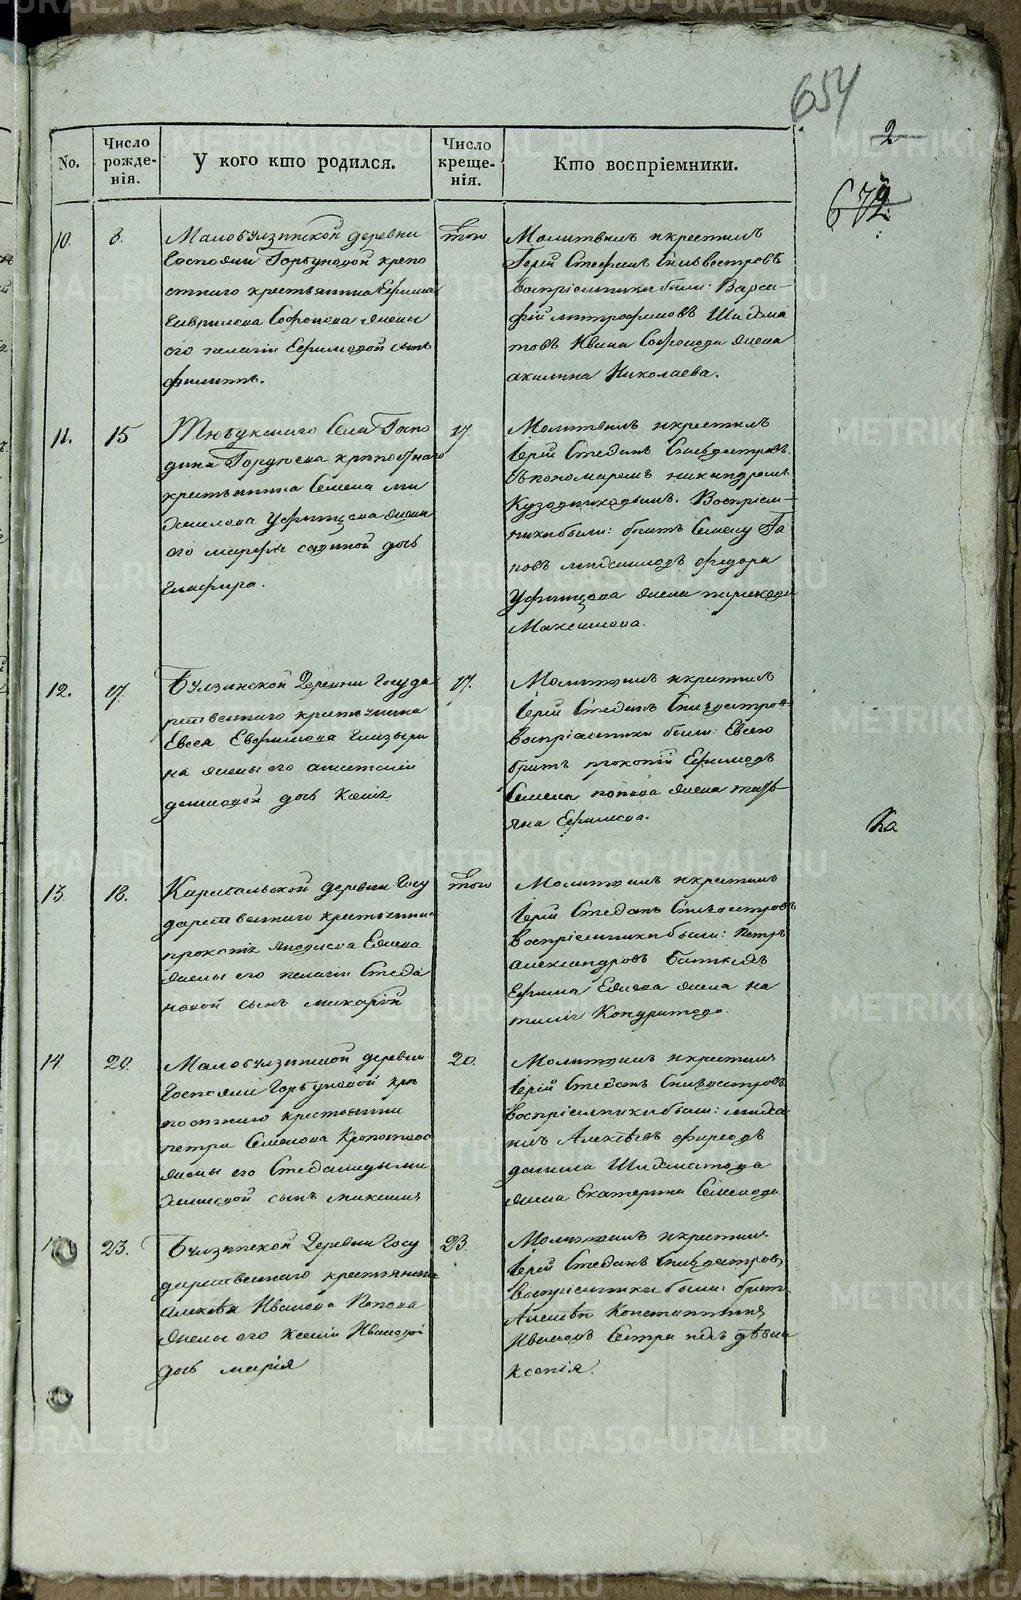 654
2
672
No.
Число
рожде-
нія.
У кого кто родился.
Число
креще-
нія.
Кто воспріемники.
10.
8.
Малобулзинской деревни
Госпожи Горбуновой крепо
стнаго крестьянина Ефима
Гаврилова Софонова жены
его пелагіи Ефимовой сынъ
филиппъ.
того
Молитвилъ икрестилъ
Іерей Стефанъ Сильвестровъ
воспріемники были: Варса-
фій митрофановъ Шихма
товъ Ивана Софонова жена
акилина Николаева.
11.
15
Тюбукскаго Села Госпо
дина Гордѣева крѣпостнаго
крестьянина Семена ми
хаилова Уфимцова жены
его марфы савиной дочь
глафира.
17.
Молитвилъ икрестилъ
Іерей Стефанъ Сильвестровъ
съпономаремъ никандромъ
Кузовниковымъ. Воспріем-
никибыли: братъ Семену Га
михаиловъ федора
Уфимцова жена
Максимова.
12.
17.
Булзинской Деревни Госуда
рственнаго крестьянина
Евсея Евфимова Глазыри
на жены его анастасіи
даниловой дочь Ксенія
17.
Молитвилъ икрестилъ
Іерей Стефанъ Сильвестров
воспріемники были: Евсею
братъ прокопій Ефимовъ
Семена попова жена татья-
яна Ефимова.
13.
18.
Карабольской деревни Госу
дарственнаго крестьянина
прокопія Елисева
жены его пелагіи Стефа
новой сынъ макарій
того
Молитвилъ икрестилъ
Іерей Стефанъ Сильвестровъ
воспріемникибыли: Петръ
александровъ
Ефима Елисева жена на
талія Кондратова.
14
20.
Малобулзинской деревни
Госпожи Горбуновой кре
постнаго крестьянина
петра Семенова
жены его Стефаниды ми
хайловой сынъ максимъ
20.
Молитвилъ икрестилъ
Іерей Стефанъ Сильвестровъ
воспріемникибыли: миха
илъ Алексѣевъ
данила Шихматова
жена Екатерина Семенова.
23.
Булзинской Деревни Госу
дарственнаго крестьянина
Алексѣя Иванова Попова
жены его Ксеніи Ивановой
дочь марія
23.
Молитвилъ икрестилъ
Іерей Стефанъ Сильвестров
воспріемники были: братъ
Алексѣю Константинъ
Ивановъ Сестра ихъ дѣвица
Ксенія.